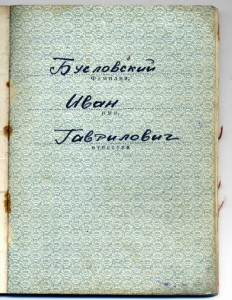 Бусловский
фамилия,
Иван
имя,
Гаврилович
отчество